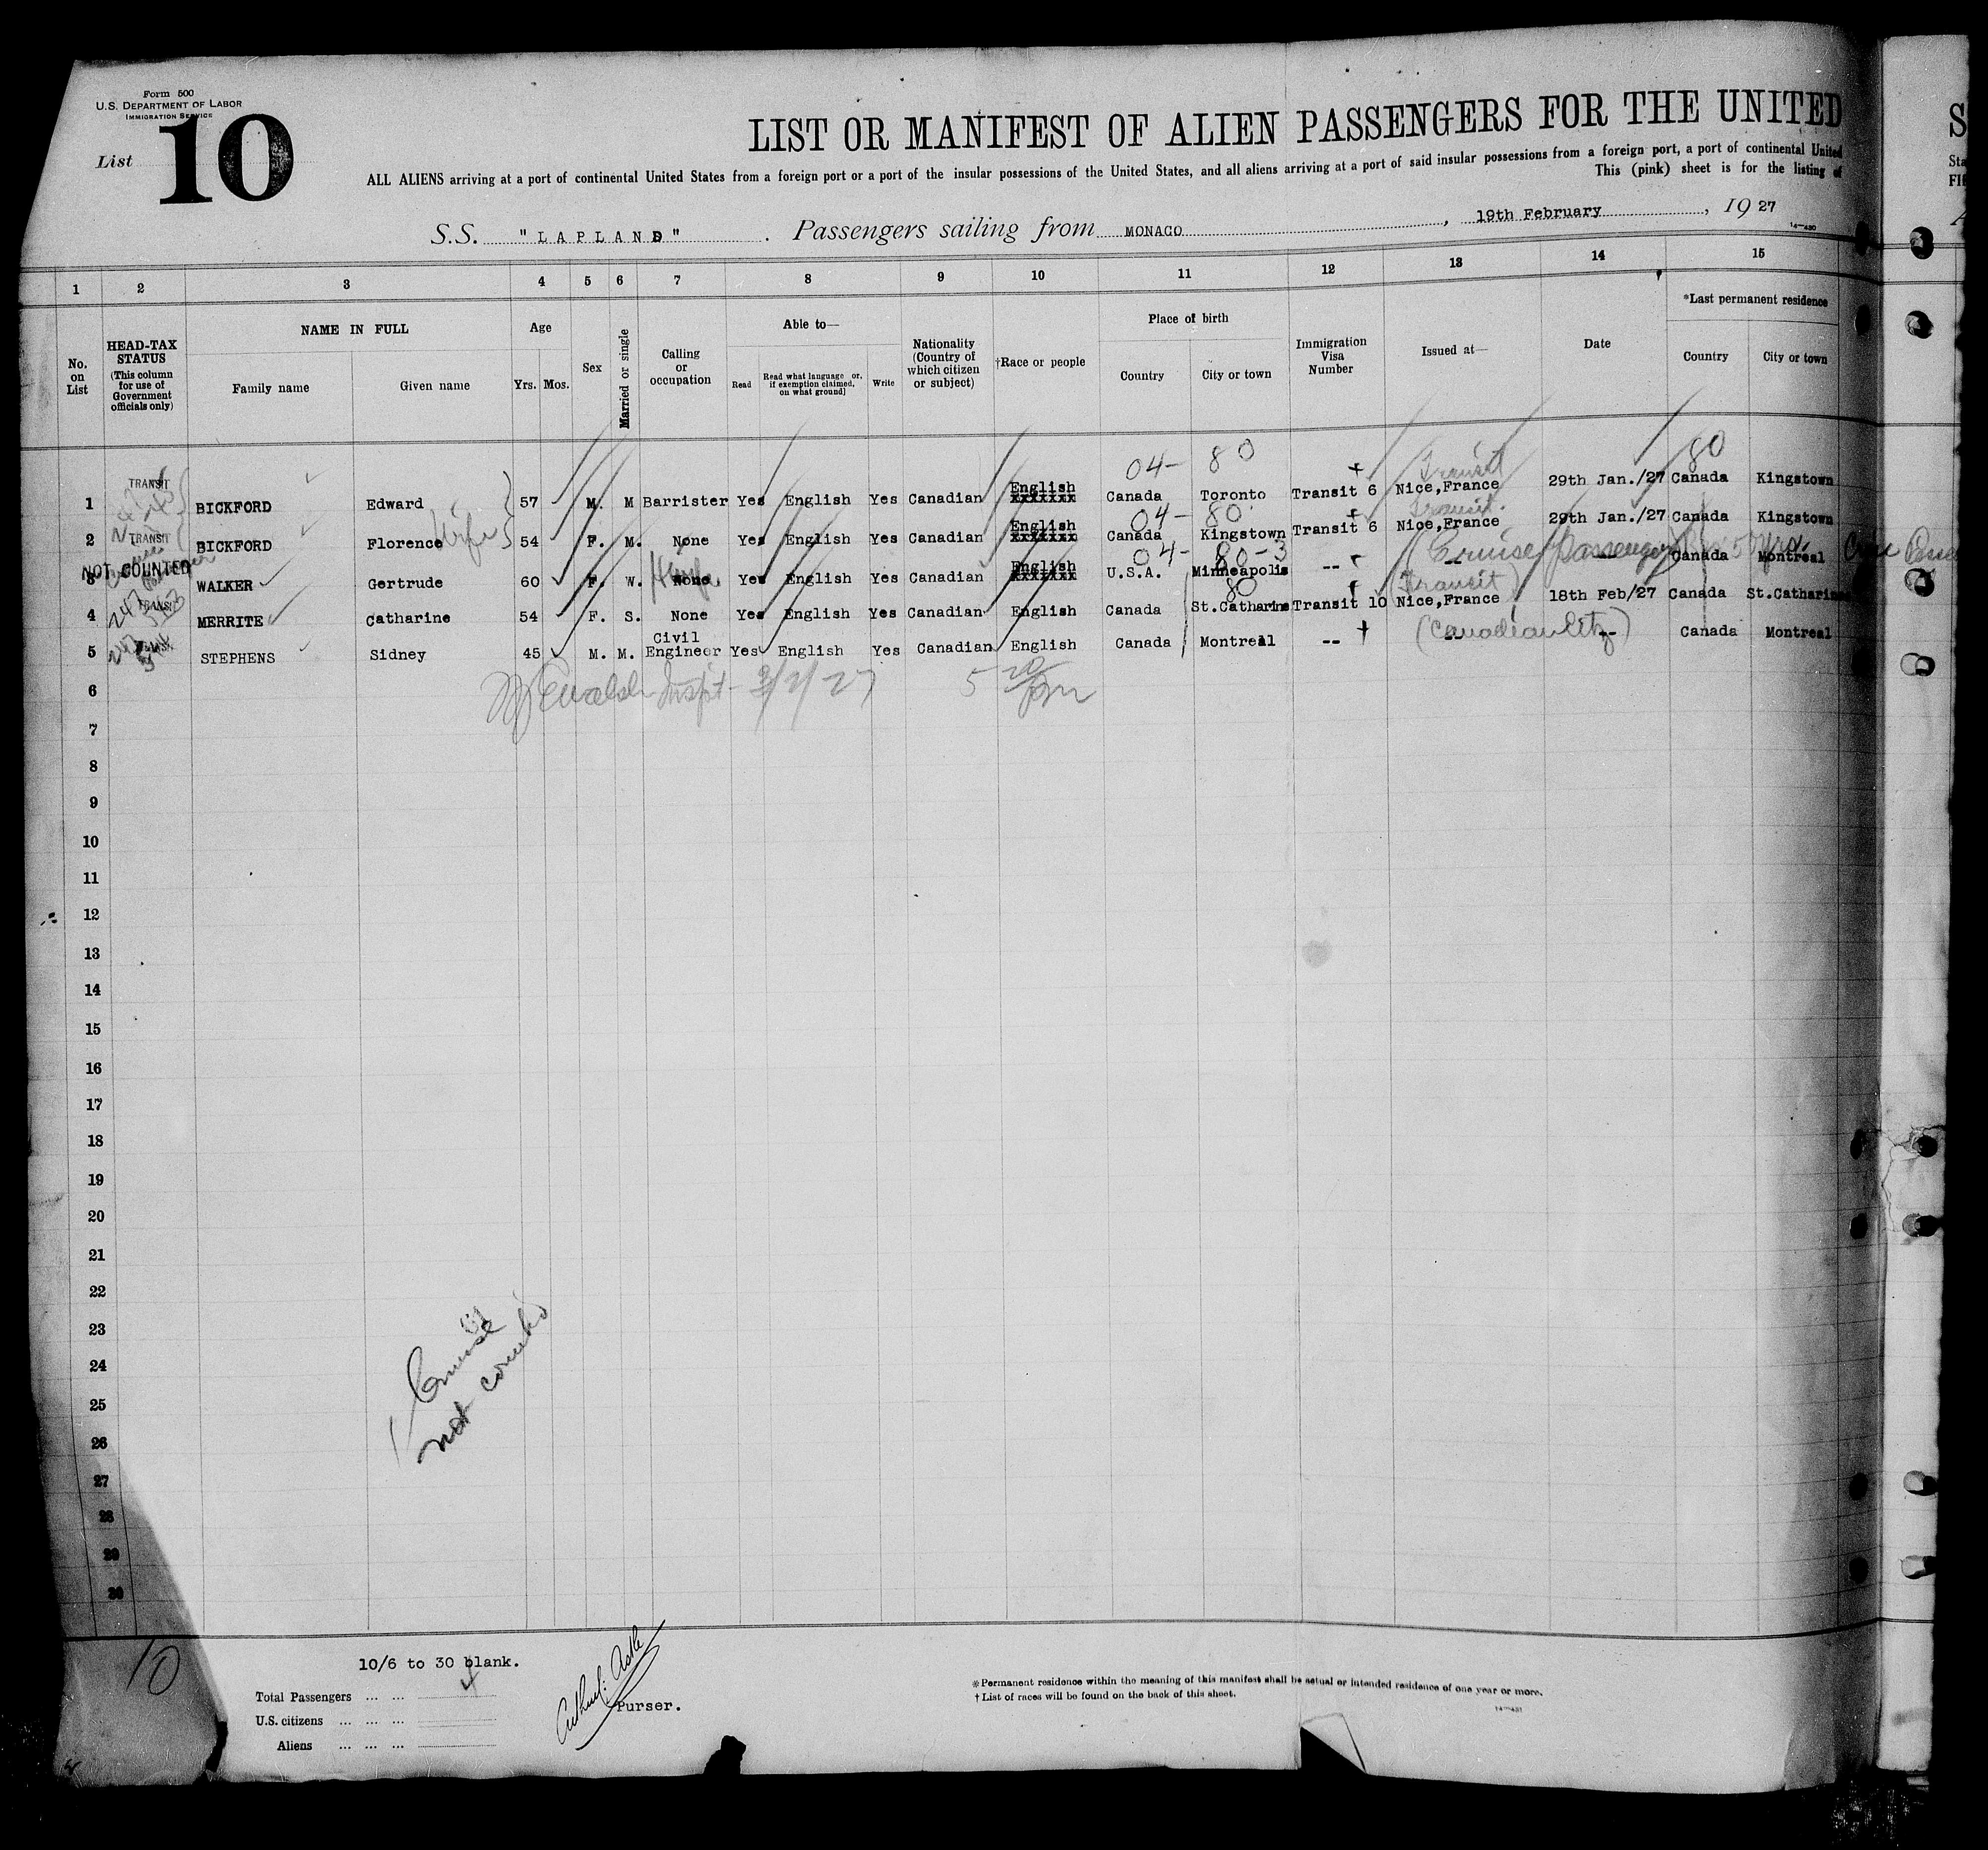 Form 500
U.S. DEPARTMENT OF LABOR
IMMIGRATION SERVICE
List 10
LIST OR MANIFEST OF ALIEN PASSENGERS FOR THE UNITED
ALL ALIENS arriving at a port of continental United States from a foreign port or a port of the insular possessions of the United States, and all aliens arriving at a port of said insular possessions from a foreign port, a port of continental United
This (pink) sheet is for the listing of
S.S. "LAPLAND". Passengers sailing from MONACO, 19th February, 1927
14-430
1 2 3 4 5 6 7 8 9 10 11 12 13 14 15
No. on List
HEAD-TAX STATUS (This column for use of Government officials only)
NAME IN FULL
Family name Given name
Age
Yrs. Mos.
Sex
Married or single
Calling or occupation
Able to—
Read Read what language or, if exemption claimed, on what ground] Write
Nationality (Country of which citizen or subject)
†Race or people
Place of birth
Country City or town
Immigration Visa Number
Issued at—
Date
*Last permanent residence
Country City or town
04- 80 Transit 80
1 TRANSIT BICKFORD Edward 57 M. M Barrister Yes English Yes Canadian English xxxxxxx Canada Toronto Transit 6 Nice,France 29th Jan./27 Canada Kingstown
04- 80 Transit
2 TRANSIT BICKFORD Florence wife 54 F. M. None Yes English Yes Canadian English xxxxxxx Canada Kingstown Transit 6 Nice,France 29th Jan./27 Canada Kingstown
04- 80-3 (Cruise passenger
3 NOT COUNTED WALKER Gertrude 60 F. W. None Yes English Yes Canadian English xxxxxxx U.S.A. Minneapolis -- -- -- Canada Montreal
80 (Transit)
4 TRANSIT MERRITE Catharine 54 F. S. None Yes English Yes Canadian English Canada St.Catharine Transit 10 Nice,France 18th Feb/27 Canada St.Catharine
5 STEPHENS Sidney 45 M. M. Civil Engineer Yes English Yes Canadian English Canada Montreal -- † (Canadian Ctz) -- Canada Montreal
Inspt - 3/2/27 5 20 pm
6
7
8
9
10
11
12
13
14
15
16
17
18
19
20
21
22
23
24
25
26
27
28
29
30
Cruise
not counted
10
10/6 to 30 blank.
Total Passengers ... ...
U.S. citizens ... ... ...
Aliens ... ... ...
Purser.
*Permanent residence within the meaning of this manifest shall be actual or intended residence of one year or more.
†List of races will be found on the back of this sheet.
14-431